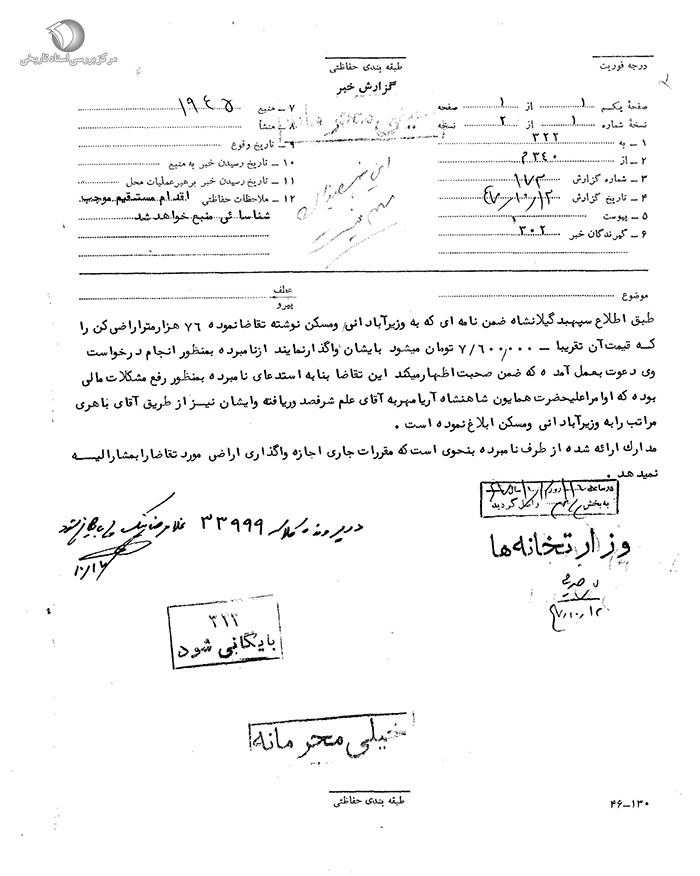 مرکز بررسی اسناد تاریخی
درجه فوریت
طبقه بندی حفاظتی
گزارش خبر
صفحهٔ یکم ۱ از ۱ صفحه
نسخهٔ شماره ۱ از ۲ نسخه
۱ ـ به ۳۲۲
۲ ـ از ۳۴۰م
۳ ـ شماره گزارش ۱۰۷۳
۴ ـ تاریخ گزارش ۴۷/۱۰/۱۲
۵ ـ پیوست
۶ ـ گیرندگان خبر ۳۰۲
۷ ـ منبع ۱۹۴۵
۸ ـ منشأ
۹ ـ تاریخ وقوع
۱۰ ـ تاریخ رسیدن خبر به منبع
۱۱ ـ تاریخ رسیدن خبر برهبر عملیات محل
۱۲ ـ ملاحظات حفاظتی اقدام مستقیم موجب
شناسائی منبع خواهد شد
خیلی محرمانه
موضوع
عطف
پیرو
طبق اطلاع سپهبد گیلانشاه ضمن نامه ای که به وزیر آبادانی ومسکن نوشته تقاضا نموده ۷۶ هزار متر اراضی کن را
که قیمت آن تقریبا ـ ۷/۶۰۰,۰۰۰ تومان میشود بایشان واگذار نمایند از نامبرده بمنظور انجام درخواست
وی دعوت بعمل آمده که ضمن صحبت اظهار میکند این تقاضا بنا به استدعای نامبرده بمنظور رفع مشکلات مالی
بوده که اوامر اعلیحضرت همایون شاهنشاه آریامهر به آقای علم شرف صدور یافته وایشان نیز از طریق آقای باهری
مراتب را به وزیر آبادانی ومسکن ابلاغ نموده است .
مدارک ارائه شده از طرف نامبرده بنحوی است که مقررات جاری اجازه واگذاری اراضی مورد تقاضا را بمشارالیه
نمیدهد .
به بخش داخل گردید
وزارتخانه ها
۴۷/۱۰/۱۲
در پرونده کلاسه ۳۳۹۹۹ غلامرضا نیک پی بایگانی شود
۱۰/۱۷
۳۱۲
بایگانی شود
خیلی محرمانه
طبقه بندی حفاظتی
۴۶-۱۳۰